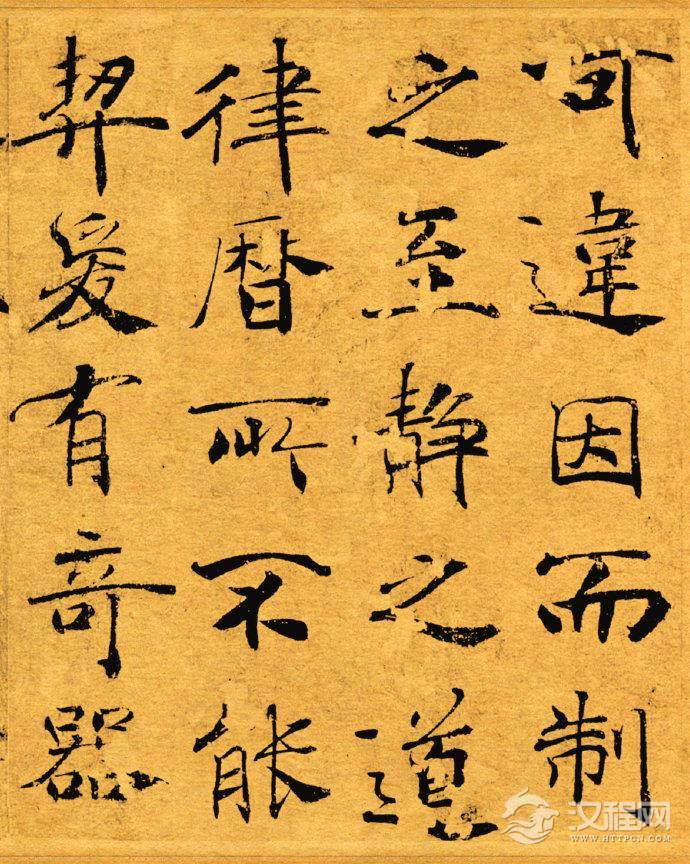 可違因而制
之至靜之道
律曆所不能
契爰有奇器
汉程网
WWW.HTTPCN.COM